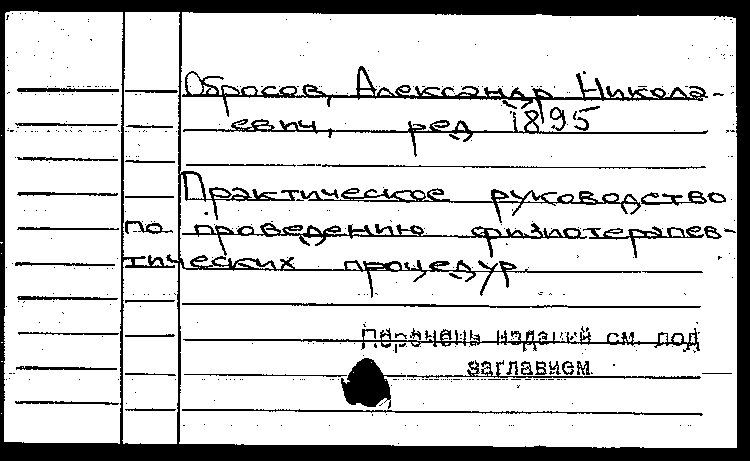 Обросов, Александр Никола-
евич, ред. 1895
Практическое руководство
по проведению физиотерапев-
тических процедур.
Перечень изданий см. под
заглавием